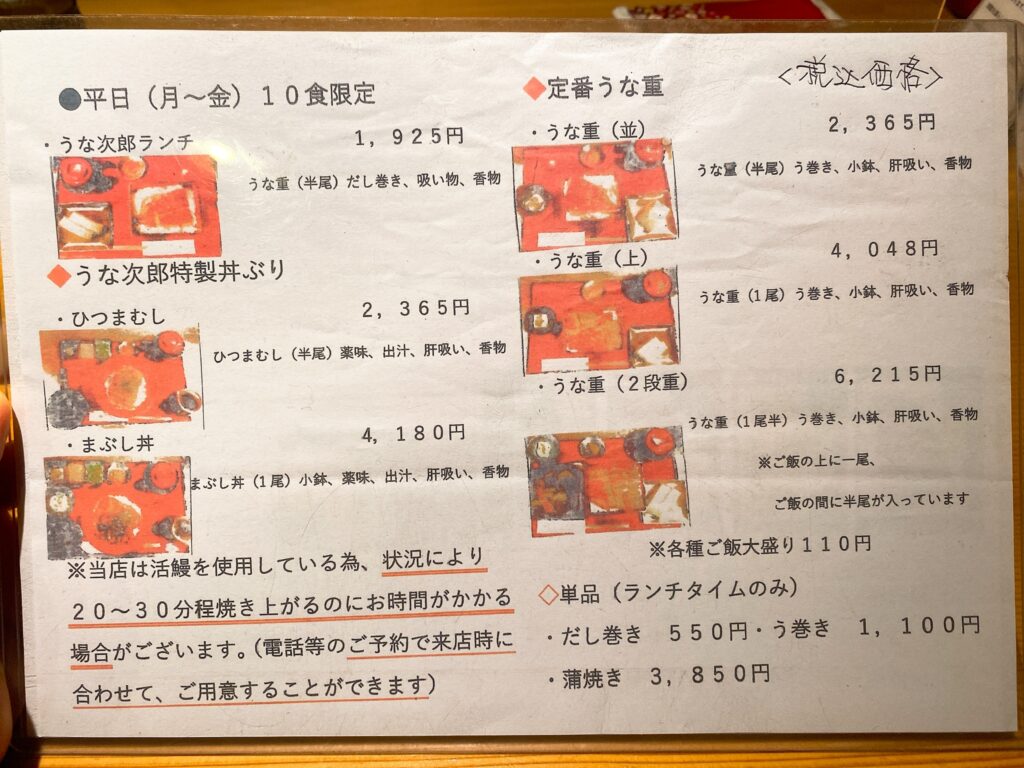 ●平日（月～金）１０食限定
・うな次郎ランチ
１，９２５円
うな重（半尾）だし巻き、吸い物、香物
◆うな次郎特製丼ぶり
・ひつまむし
２，３６５円
ひつまむし（半尾）薬味、出汁、肝吸い、香物
・まぶし丼
４，１８０円
まぶし丼（１尾）小鉢、薬味、出汁、肝吸い、香物
※当店は活鰻を使用している為、状況により
２０～３０分程焼き上がるのにお時間がかかる
場合がございます。（電話等のご予約で来店時に
合わせて、ご用意することができます）
<税込価格>
◆定番うな重
・うな重（並）
２，３６５円
うな重（半尾）う巻き、小鉢、肝吸い、香物
・うな重（上）
４，０４８円
うな重（１尾）う巻き、小鉢、肝吸い、香物
・うな重（２段重）
６，２１５円
うな重（１尾半）う巻き、小鉢、肝吸い、香物
※ご飯の上に一尾、
ご飯の間に半尾が入っています
※各種ご飯大盛り１１０円
◇単品（ランチタイムのみ）
・だし巻き　５５０円・う巻き　１，１００円
・蒲焼き　３，８５０円